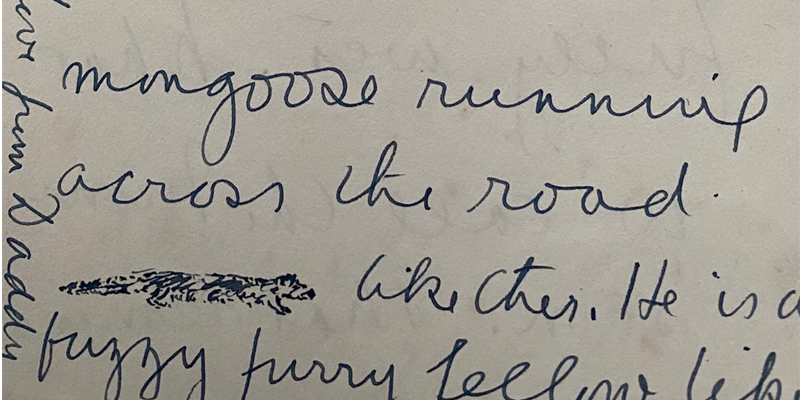 mongoose running
across the road.
like this. He is a
fuzzy furry fellow like
from Daddy